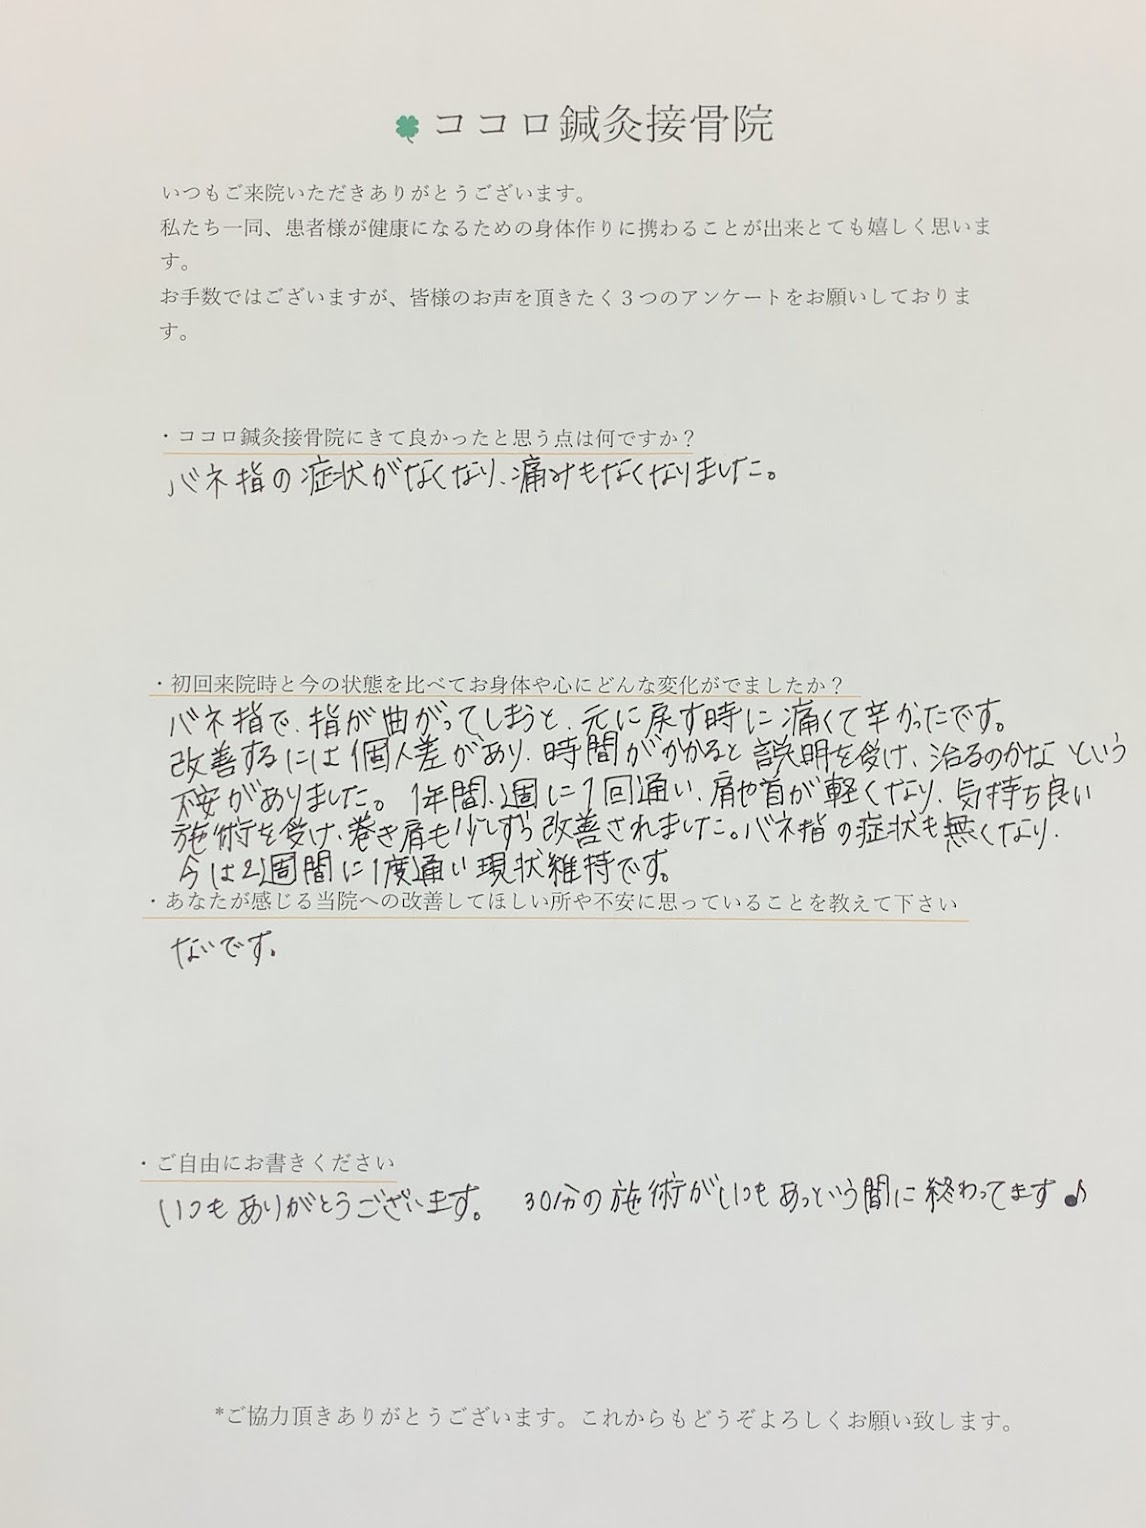 ココロ鍼灸接骨院
いつもご来院いただきありがとうございます。
私たち一同、患者様が健康になるための身体作りに携わることが出来とても嬉しく思いま
す。
お手数ではございますが、皆様のお声を頂きたく3つのアンケートをお願いしておりま
す。
・ココロ鍼灸接骨院にきて良かったと思う点は何ですか？
バネ指の症状がなくなり、痛みもなくなりました。
・初回来院時と今の状態を比べてお身体や心にどんな変化がでましたか？
バネ指で、指が曲がってしまうと、元に戻す時に痛くて辛かったです。
改善するには個人差があり、時間がかかると説明を受け、治るのかなという
不安がありました。1年間、1週に1回通い、肩や首が軽くなり、気持ち良い
施術を受け、巻き肩も少しずつ改善されました。バネ指の症状も無くなり、
今は2週間に1度通い現状維持です。
・あなたが感じる当院への改善してほしい所や不安に思っていることを教えて下さい
ないです。
・ご自由にお書きください
いつもありがとうございます。 30分の施術がいつもあっという間に終わってます♪
*ご協力頂きありがとうございます。これからもどうぞよろしくお願い致します。